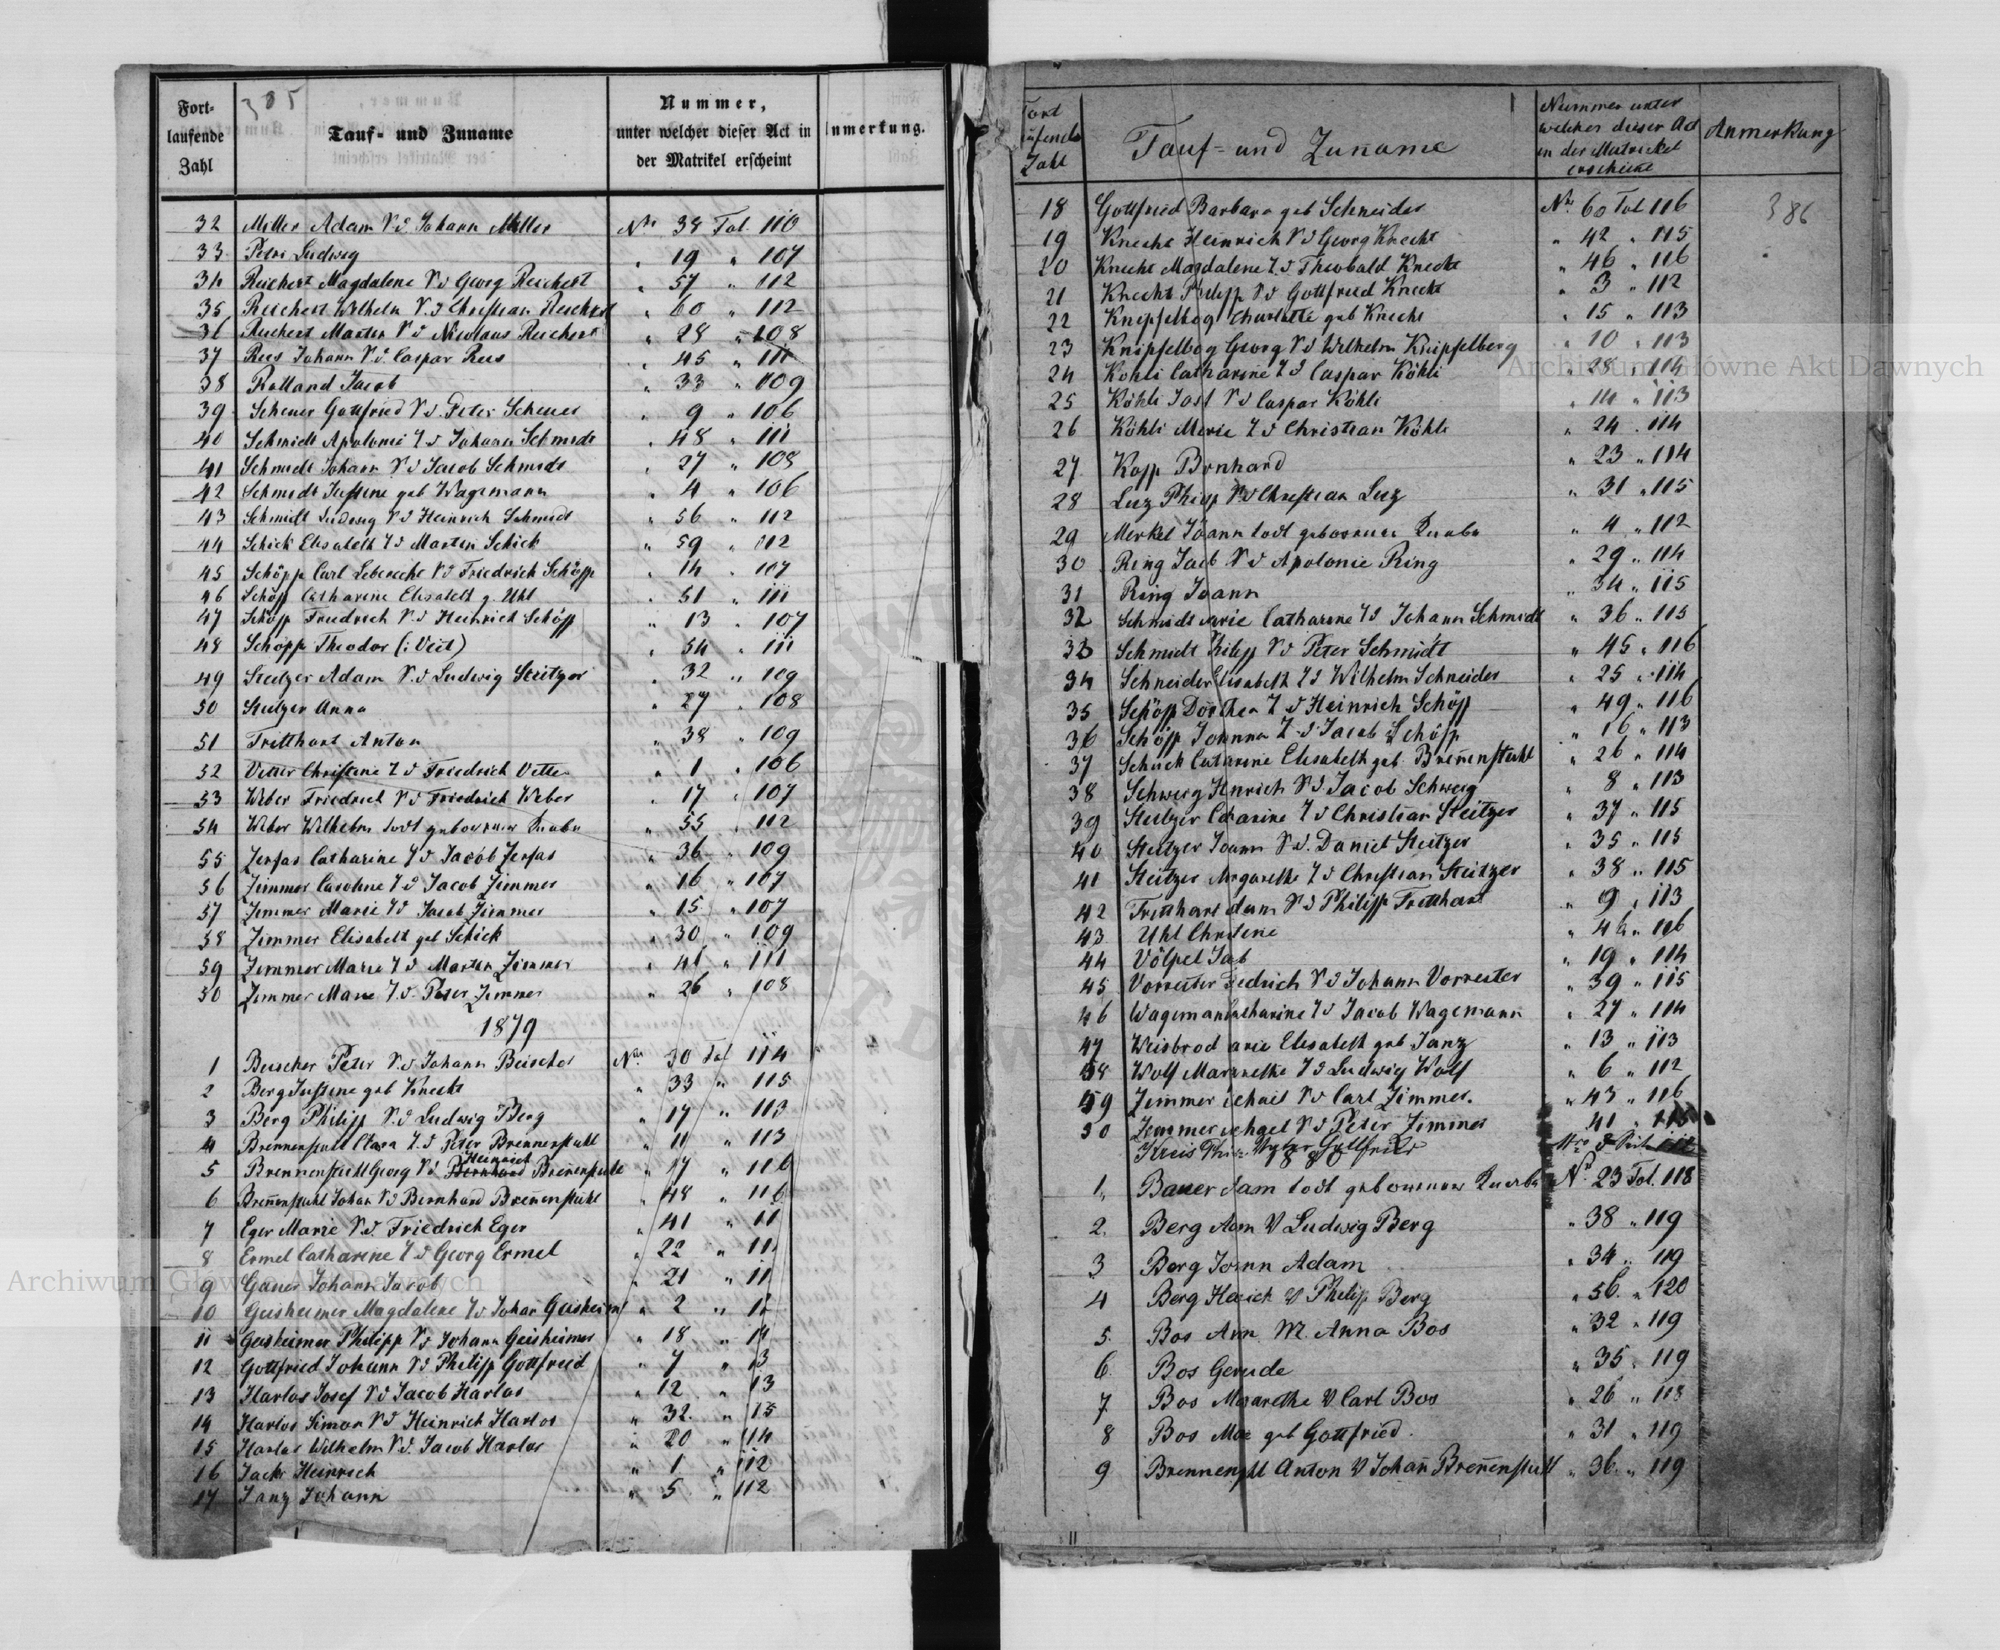 385
Fort-
laufende
Zahl
Tauf- und Zuname
Nummer,
unter welcher dieser Act in
der Matrikel erscheint
Anmerkung.
32 Miller Adam V.d Johann Miller No 38 Fol. 110
33 Petri Ludwig " 19 " 107
34 Reichert Magdalene T.d Georg Reichert " 57 " 112
35 Reichert Wilhelm V.d Christian Reichert " 60 " 112
36 Reichert Martin V d Nicolaus Reichert " 28 " 108
37 Rees Johann V.d Caspar Rees " 45 " 111
38 Rolland Jacob " 33 " 109
39 Scheuer Gottfried V.d. Peter Scheuer " 9 " 106
40 Schmidt Apolonie T d Johann Schmidt " 48 " 111
41 Schmidt Johann V d Jacob Schmidt " 27 " 108
42 Schmidt Justine geb Wagemann " 4 " 106
43 Schmidt Ludwig V d Heinrich Schmidt " 56 " 112
44 Schick Elisabeth T d Martin Schick " 59 " 112
45 Schöpp Carl Leberecht V d Friedrich Schöpp " 14 " 107
46 Schöpp Catharine Elisabeth g. Uhl " 51 " 111
47 Schöpp Friedrich V.d Heinrich Schöpp " 13 " 107
48 Schöpp Theodor (: Veit) " 54 " 111
49 Steitzer Adam V.d Ludwig Steitzer " 32 " 109
50 Steitzer Anna " 27 " 108
51 Tritthart Anton " 38 " 109
52 Vetter Christine T d Friedrich Vetter " 1 " 106
53 Weber Friedrich V d Friedrich Weber " 17 " 107
54 Weber Wilhelm todt geborener Knabe " 55 " 112
55 Zerfas Catharine T d Jacob Zerfas " 36 " 109
56 Zimmer Caroline T d Jacob Zimmer " 16 " 107
57 Zimmer Marie T d Jacob Zimmer " 15 " 107
58 Zimmer Elisabeth geb Schick " 30 " 109
59 Zimmer Marie T d Martin Zimmer " 41 " 111
50 Zimmer Marie T.d. Peter Zimmer " 26 " 108
1879
1 Beischer Peter V.d Johann Beischer No. 30 Fol 114
2 Berg Justine geb Knecht " 33 " 115
3 Berg Philipp V.d Ludwig Berg " 17 " 113
4 Brennenstuhl Clara T.d Peter Brennenstuhl " 11 " 113
Heinrich
5 Brennenstuhl Georg V d Bernhard Brenenstuhl " 47 " 116
6 Breñenstuhl Johan V d Bernhard Breñenstuhl " 48 " 116
7 Eger Marie V.d. Friedrich Eger " 41 " 11
8 Ermel Catharine T d Georg Ermel " 22 " 11
9 Gauer Johann Jacob " 21 " 11
10 Geisheimer Magdalene T d Johan Geisheim " 2 " 11
11 Geisheimer Philipp V d Johann Geisheimer " 18 " 14
12 Gottfried Johann V d Philipp Gottfried " 7 " 13
13 Harlos Josef V d Jacob Harlos " 12 " 13
14 Harlos Simon V d Heinrich Harlos " 32. " 15
15 Harlos Wilhelm V.d. Jacob Harlos " 20 " 114
16 Jackr Heinrich " 1 " 112
17 Janz Johann " 5 " 112
Fort
laufende
Zahl
Tauf- und Zuname
Nummer unter
welcher dieser Act
in der Matrickel
erscheint
Anmerkung
386
18 Gottfried Barbara geb Schneider No. 60 Fol 116
19 Knecht Heinrich V d Georg Knecht " 42 " 115
20 Knecht Magdalene T.d Theobald Knecht " 46 " 116
21 Knecht Philipp V d Gottfried Knecht " 3 " 112
22 Knipfelberg Charlotte geb Knecht " 15 " 113
23 Knipfelberg Georg V d Wilhelm Knipfelberg " 10 " 113
24 Köhli Catharine T d Caspar Köhli " 28 " 114
25 Köhli Jost V d Caspar Köhli " 14 " 113
26 Köhli Marie T d Christian Köhli " 24 . 114
27 Kopp Brnhard " 23 " 114
28 Luz Philipp V d Christian Luz " 31 " 115
29 Merkel Joann todt geborener Knabe " 4 " 112
30 Ring Jacb V d Apolonie Ring " 29 " 114
31 Ring Joann " 34 " 115
32 Schmidt arie Catharine T d Johann Schmidt " 36 " 115
33 Schmidt Filipp V d Peter Schmidt " 45 " 116
34 Schneider Elisabeth T d Wilhelm Schneider " 25 " 114
35 Schöpp Dorthea T d Heinrich Schöpp " 49 " 116
36 Schöpp Joannna T d Jacob Schöpp " 16 " 113
37 Schick Catarine Elisabeth geb. Breñenstuhl " 26 " 114
38 Schweig Hnrich V d Jacob Schweig " 8 " 113
39 Steitzer Catarine T d Christian Steitzer " 37 " 115
40 Steitzer Joann V.d. Daniel Steitzer " 35 " 115
41 Steitzer Margarethe T d Christian Steitzer " 38 " 115
42 Tritthart dam V d Philipp Tritthart " 9 " 113
43 Uhl Christine " 44 " 116
44 Völpel Jab " 19 " 114
45 Vorreuter Fiedrich V d Johann Vorreuter " 39 " 115
46 Wagemann Catharine T d Jacob Wagemann " 27 " 114
47 Weisbrod arie Elisabeth geb Janz " 13 " 113
58 Wolf Margarethe T d Ludwig Wolf " 6 " 112
59 Zimmer ichail V d Carl Zimmer. " 43 " 116
50 Zimmer ichael V d Peter Zimmer 41 " 115
Kreis Gottfried
1880
1. Bauer dam todt geborener Knabe No. 23 Fol. 118
2. Berg Aam V Ludwig Berg " 38 " 119
3 Berg Joann Adam " 34 " 119
4 Berg Heinrich V Philipp Berg " 56. " 120
5. Bos Ann M. Anna Bos " 32 " 119
6. Bos Gerude " 35 " 119
7 Bos Margarethe V Carl Bos " 26 " 118
8 Bos Mae geb Gottfried. " 31 " 119
9 Brennenstl Anton V Johañ Breñenstuhl " 36. " 119
Archiwum Główne Akt Dawnych
Archiwum Główne Akt Dawnych